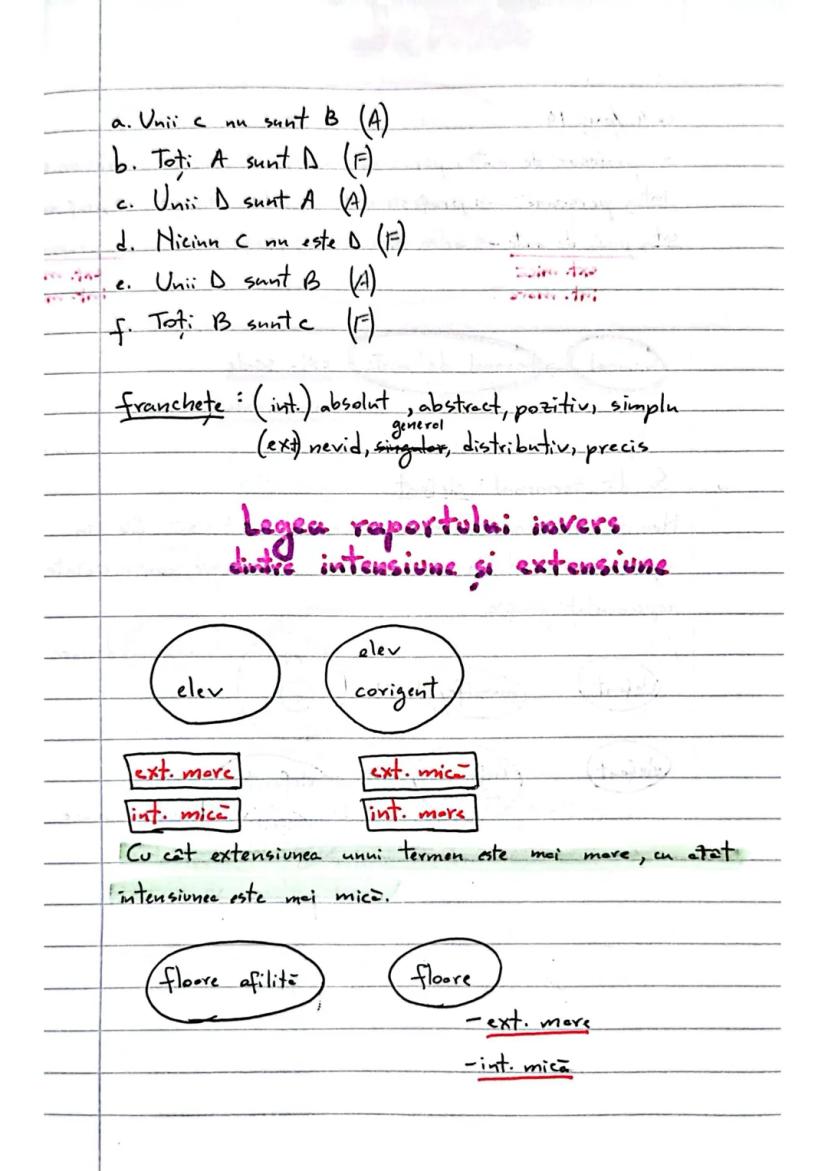 a. Unii C nu sunt B (A)
b. Toți A sunt D (F)
c. Unii D sunt A (A)
d. Niciun C nu este D (F)
e. Unii D sunt B (A)
f. Toți B sunt C (F)
franchețe : (int.) absolut, abstract, pozitiv, simplu
general
(ext) nevid, singular, distributiv, precis
Legea raportului invers
dintre intensiune și extensiune
elev
elev
corigent
ext. mare ext. mică
int. mică int. mare
Cu cât extensiunea unui termen este mai mare, cu atât
intensiunea este mai mică.
floare afilită floare
- ext. mare
- int. mică